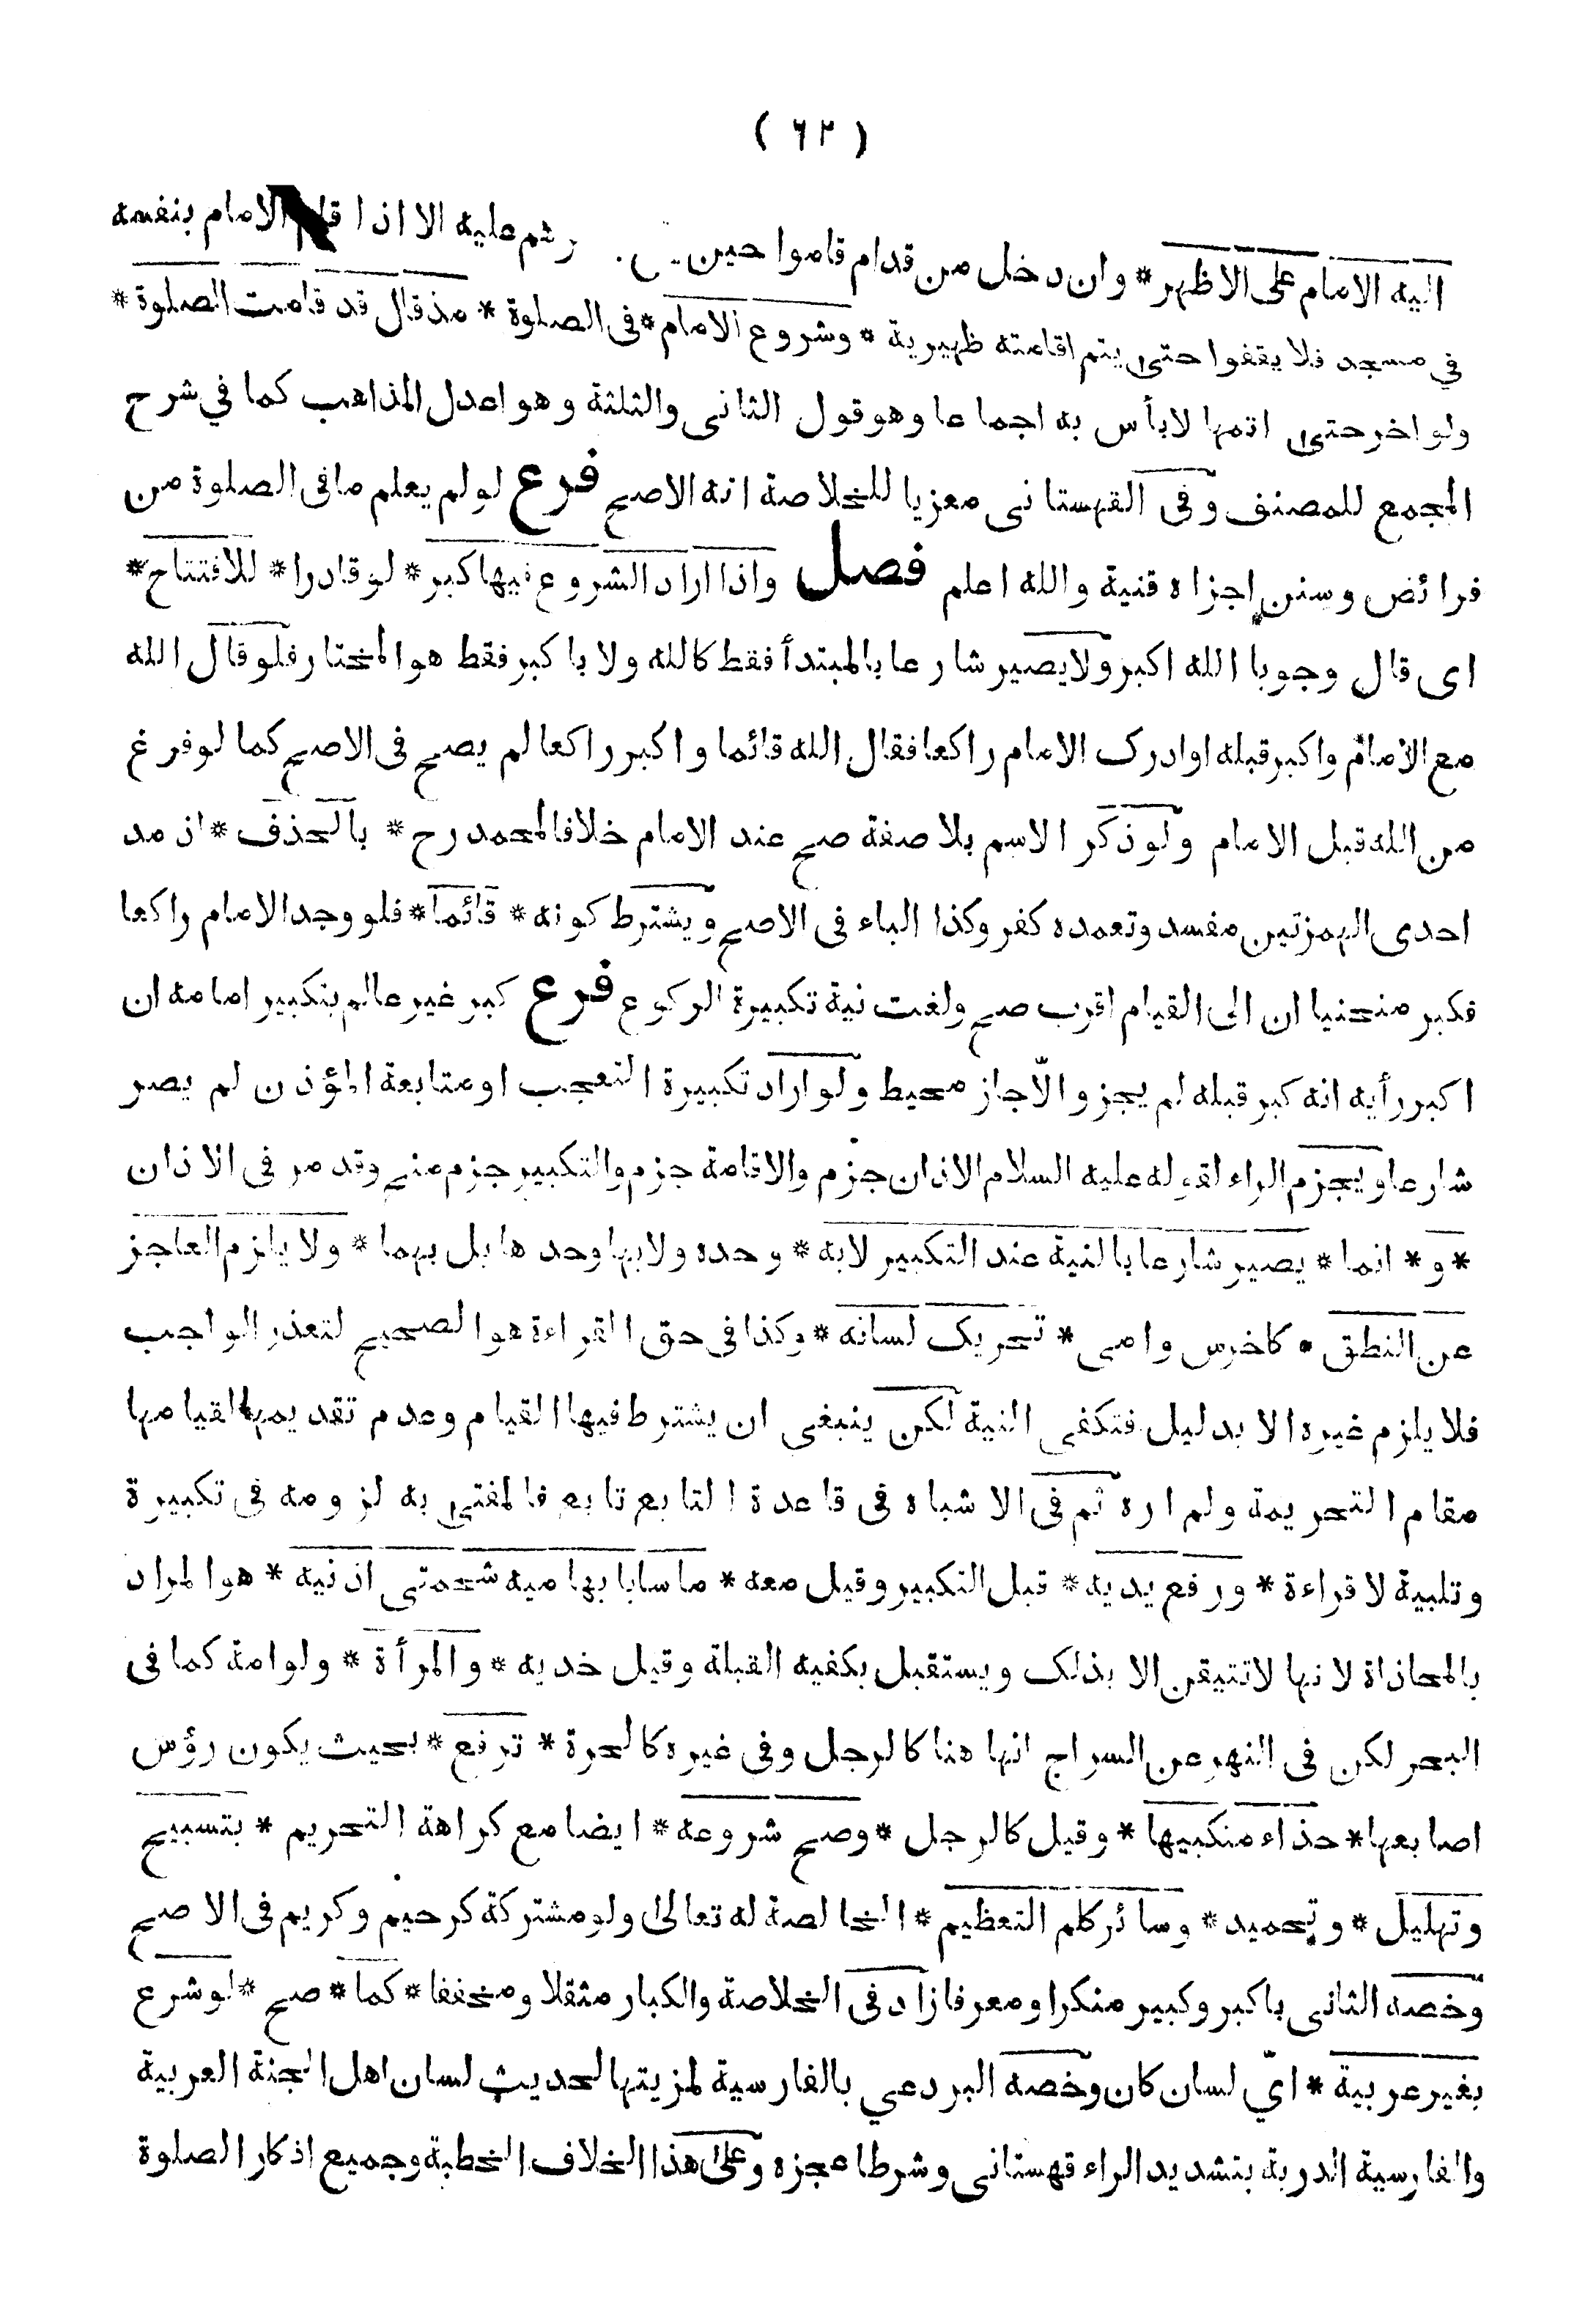 ( ٦٢ )
اليه الامام على الاظهر * وان دخل من قدام قاموا حين عليه الا اذا قام الامام بنفسه
في مسجد فلا يقفوا حتى يتم اقامته ظهيرية * وشروع الامام * فى الصلوة * مذ قال قد قامت الصلوة *
ولو اخر حتى اتمها لا بأس به اجماعا وهو قول الثانى والثلثة وهو اعدل المذاهب كما في شرح
المجمع للمصنف وفى القهستانى معزيا للخلاصة انه الاصح فرع لو لم يعلم ما فى الصلوة من
فرائض وسنن اجزاه قنية والله اعلم فصل واذا اراد الشروع فيها كبر * لو قادرا * للافتتاح *
اى قال وجوبا الله اكبر ولا يصير شارعا بالمبتدأ فقط كالله ولا باكبر فقط هو المختار فلو قال الله
مع الامام واكبر قبله او ادرك الامام راكعا فقال الله قائما واكبر راكعا لم يصح فى الاصح كما لو فرغ
من الله قبل الامام ولو ذكر الاسم بلا صفة صح عند الامام خلافا لمحمد رح * بالحذف * اذ مد
احدى الهمزتين مفسد وتعمده كفر وكذا الباء فى الاصح ويشترط كونه * قائما * فلو وجد الامام راكعا
فكبر منحنيا ان الى القيام اقرب صح ولغت نية تكبيرة الركوع فرع كبر غير عالم بتكبير امامه ان
اكبر رأيه انه كبر قبله لم يجز والّا جاز محيط ولو اراد تكبيرة التعجب او متابعة المؤذن لم يصر
شارعا ويجزم الراء لقوله عليه السلام الاذان جزم والاقامة جزم والتكبير جزم منح وقد مر فى الاذان
* و * انما * يصير شارعا بالنية عند التكبير لا به * وحده ولا بها وحدها بل بهما * ولا يلزم العاجز
عن النطق * كاخرس وامى * تحريك لسانه * وكذا فى حق القراءة هو الصحيح لتعذر الواجب
فلا يلزم غيره الا بدليل فتكفى النية لكن ينبغى ان يشترط فيها القيام وعدم تقديمها لقيامها
مقام التحريمة ولم اره ثم فى الاشباه فى قاعدة التابع تابع فالمفتى به لزومه فى تكبيرة
وتلبية لا قراءة * ورفع يديه * قبل التكبير وقيل معه * ماسا بابهاميه شحمتى اذنيه * هو المراد
بالمحاذاة لانها لا تتيقن الا بذلك ويستقبل بكفيه القبلة وقيل خديه * والمرأة * ولو امة كما فى
البحر لكن فى النهر عن السراج انها هنا كالرجل وفى غيره كالحرة * ترفع * بحيث يكون رؤس
اصابعها * حذاء منكبيها * وقيل كالرجل * وصح شروعه * ايضا مع كراهة التحريم * بتسبيح
وتهليل * وتحميد * وسائر كلم التعظيم * الخالصة له تعالى ولو مشتركة كرحيم وكريم فى الاصح
وخصه الثانى باكبر وكبير منكرا ومعرفا زاد فى الخلاصة والكبار مثقلا ومخففا * كما * صح * لو شرع
بغير عربية * ايّ لسان كان وخصه البردعي بالفارسية لمزيتها لحديث لسان اهل الجنة العربية
والفارسية الدرية بتشديد الراء قهستانى وشرطا عجزه وعلى هذا الخلاف الخطبة وجميع اذكار الصلوة